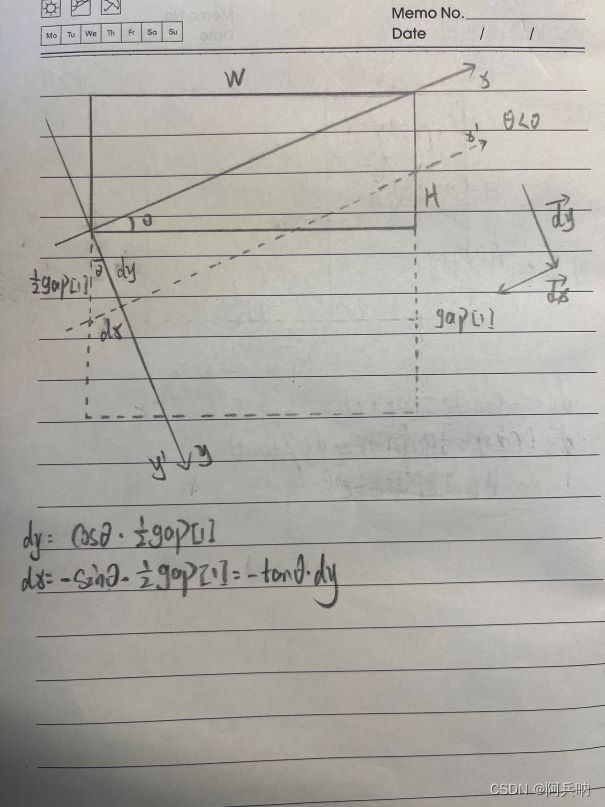 Memo No.
Mo Tu We Th Fr Sa Su
Date / /
W
x
x'
θ<0
H
θ
dy
θ
dy
½gap[1]
dx
dx
gap[1]
y' y
dy = cosθ · ½gap[1]
dx = -sinθ · ½gap[1] = -tanθ · dy
CSDN @阿兵呐